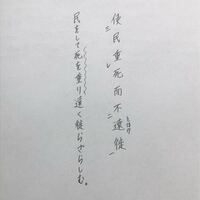 使民重死而不遠徙
ニ レ ニ うつ 一
民をして死を重り遠く徙らざらしむ。